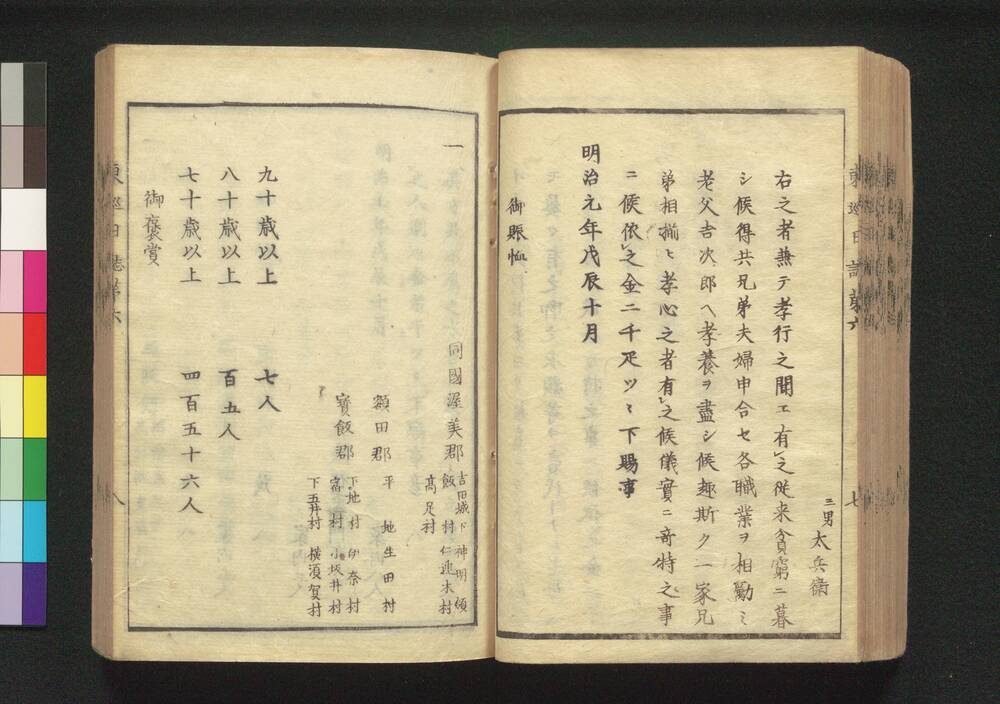 三男 太兵衛
右之者兼テ孝行之聞エ有之従来貧窮ニ暮
シ候得共兄弟夫婦申合セ各職業ヲ相勤ミ
老父吉次郎ヘ孝養ヲ盡シ候趣斯ク一家兄
弟相揃ヒ孝心之者有之候儀實ニ奇特之事
ニ候依之金二千疋ツヽ下賜事
明治元年戊辰十月
御賑恤
一 同國渥美郡 吉田城下 神明頭
飯村 仁連木村
高足村
額田郡 平地 生田村
寳飯郡 下地村 伊奈村
宿村 小坂井村
下五井村 横須賀村
九十歳以上 七人
八十歳以上 百五人
七十歳以上 四百五十六人
御褒賞
東巡日誌第六 八
東巡日誌第六 七